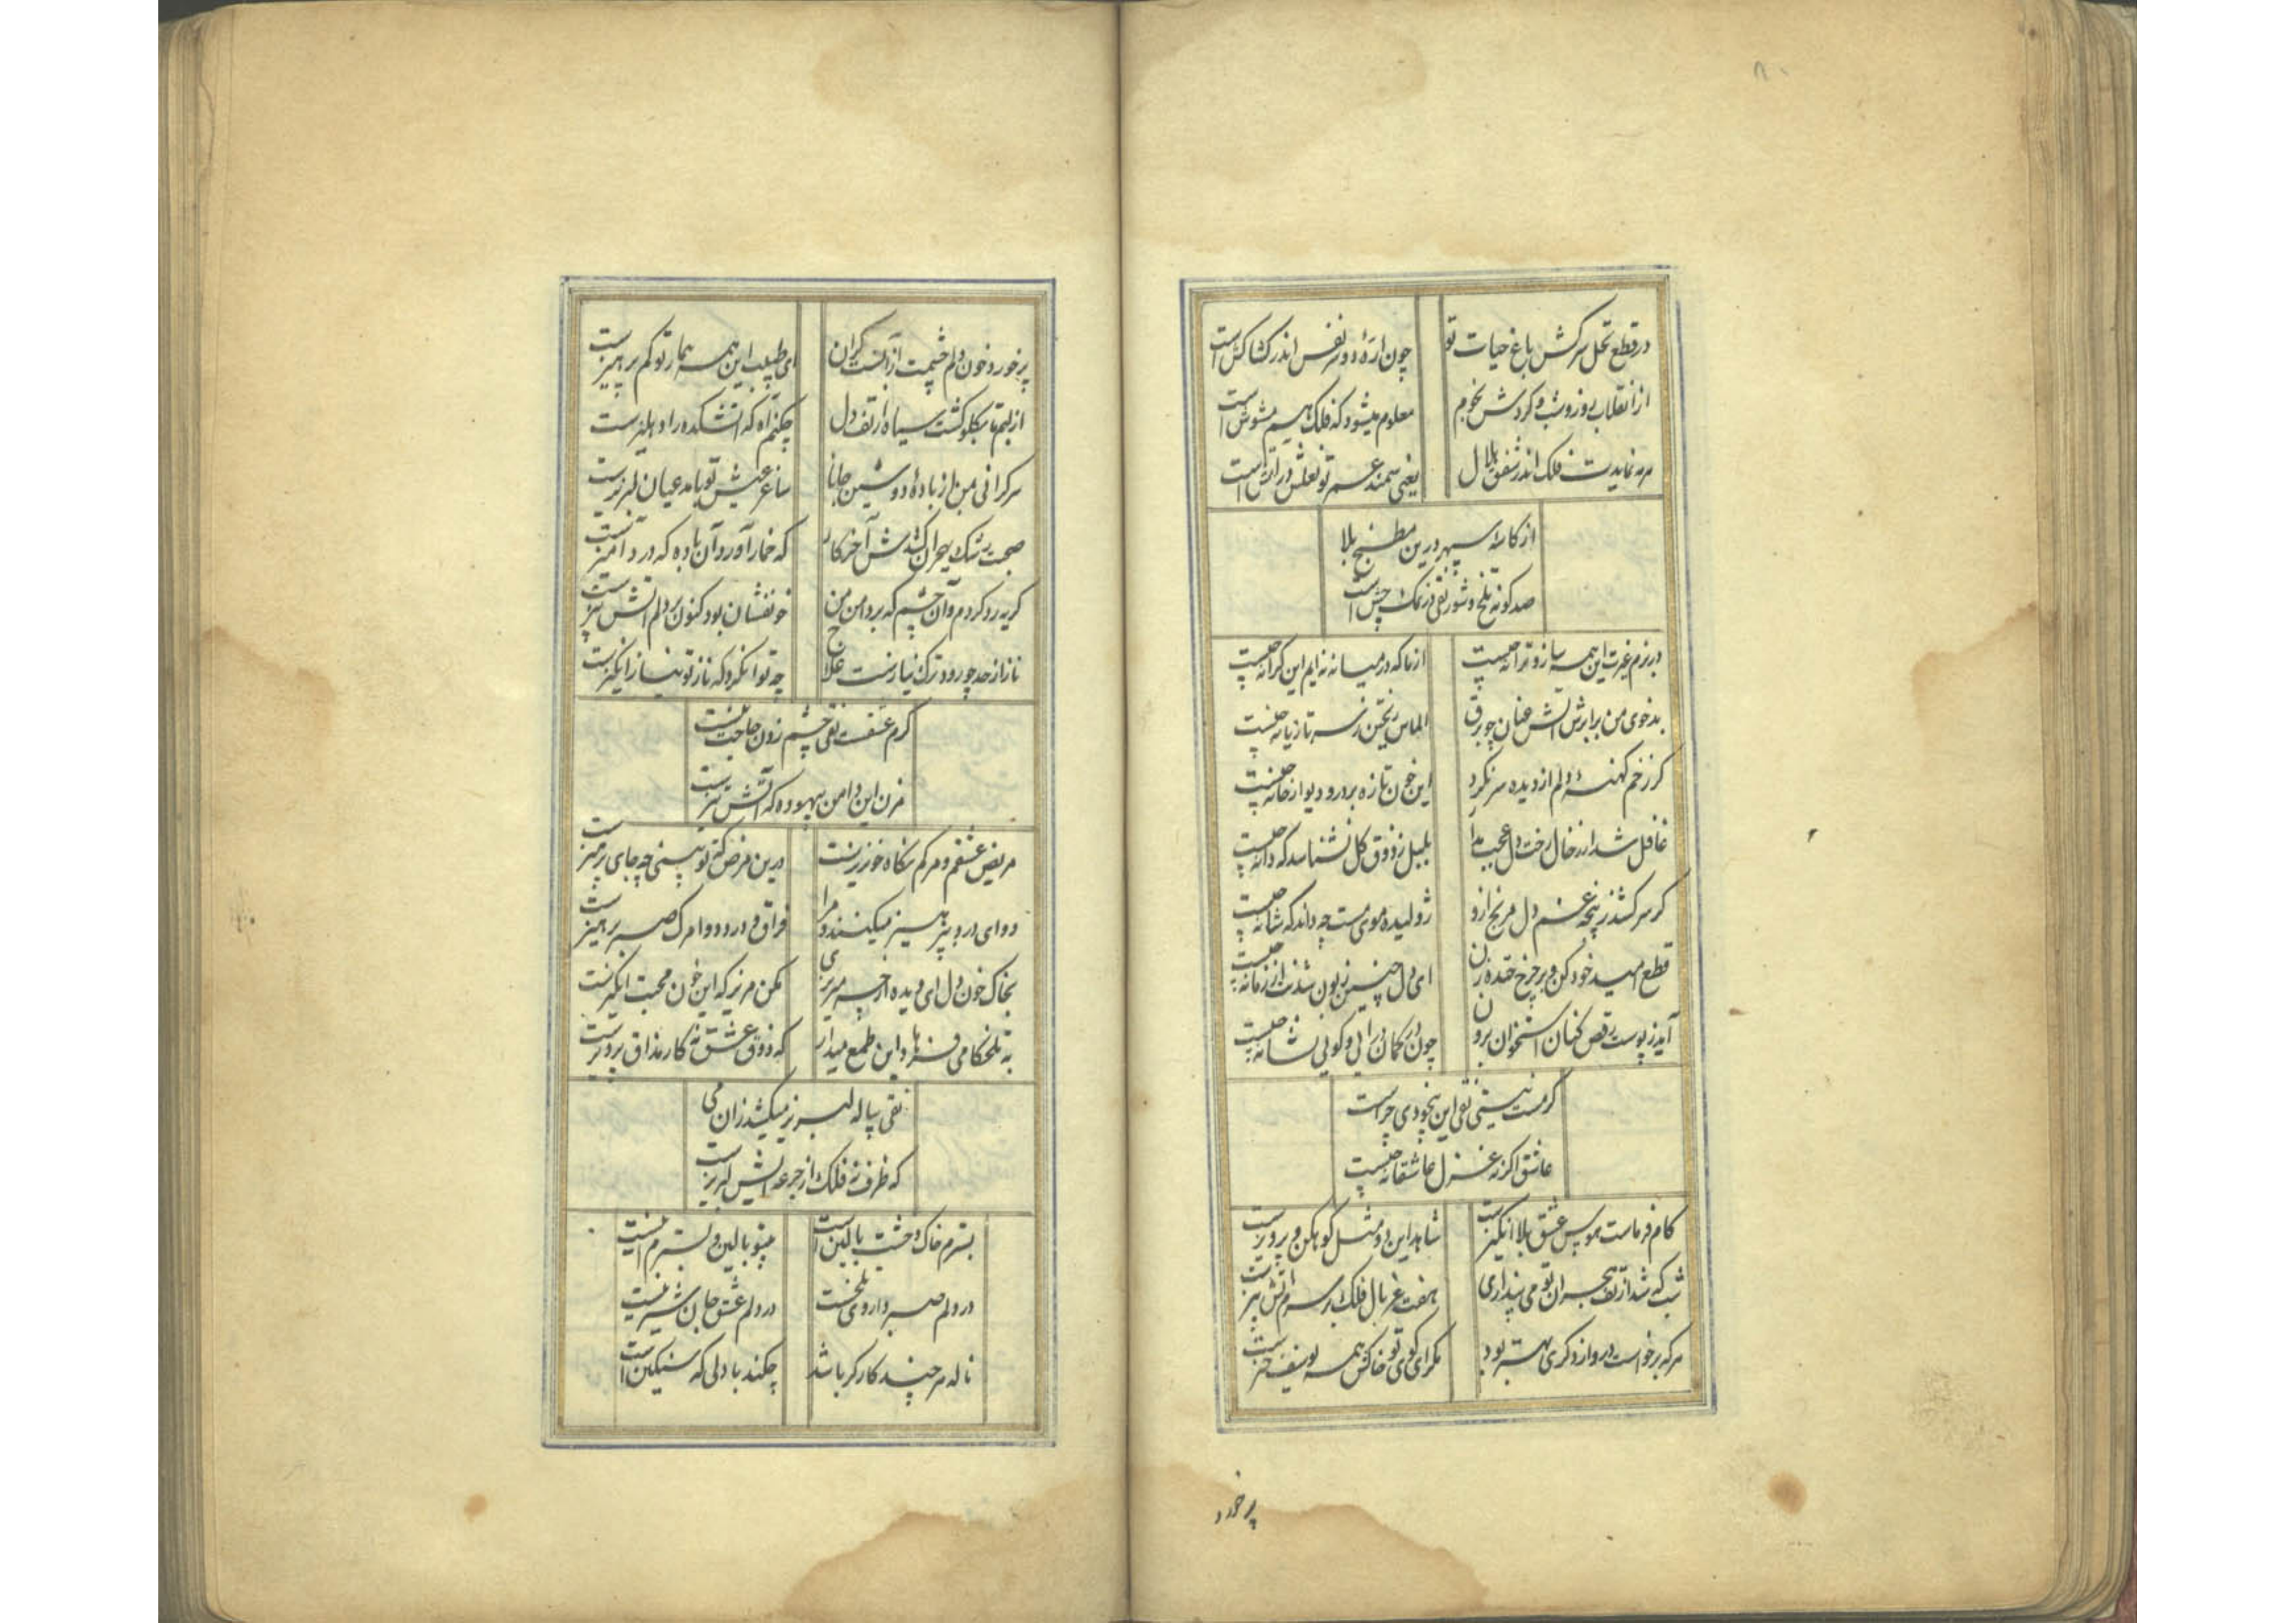 در قطع نخل سرکش باغ حیات تو
چون ارّهٔ دو سر نفس اندر کشاکش است
از انقلاب روز و شب و کردش نجوم
معلوم میشود که فلک هم مشوش است
مه نمایدت فلک اندر شفق هلال
یعنی سمند عمر تو نعلش در آتش است
از کاسهٔ سپهر درین مطبخ بلا
صد کونه تلخ و شور نقی در نمک چش است
در بزم غیرت این همه ساز و ترانه چیست
از ما که در میانه نه ایم این کرانه چیست
بدخوی من برابرش آتش عنان چو برق
الماس ریختن ز سر تازیانه چیست
کر زخم کهنهٔ دلم از دیده سر نکرد
این خون تازه بر در و دیوار خانه چیست
غافل شد از خال رخت دل عجب مدار
بلبل ز ذوق کل نشناسد که دانه چیست
کر سر کشد ز پنجه غم دل مرنج ازو
ژولیده موی مست چه داند که شانه چیست
قطع امید خود کن و بر چرخ خنده زن
ای دل چنین زبون شدنت از زمانه چیست
آید ز پوست رقص کنان استخوان برون
چون در کمان در آیی و کویی نشانه چیست
کر مست نیستی نقی این بیخودی چراست
عاشق اکر نه غزل عاشقانه چیست
کام فرماست هوس عشق بلا انکیز است
شاهد این دو مثل کوهکن و پرویز است
شب که شد از تف هجران تو می پنداری
هفت غربال فلک بر سرم آتش بیز است
هر که برخاست در او از دکری بهتر بود
مکر ای کوی تو خاکش همه یوسف خیز است
پر خورد
پر خورد خون دلم چشمت از آنست کران
ای طبیب این همه بیمار تو کم پرهیز است
از لبم تا بکلو کشت سیاه از تف دل
چکنم آه که آتشکده را دهلیز است
سرکرانی من از بادهٔ دوشین جانا
ساغر عیش تو با مدعیان لبریز است
صحبت رشک بهجران کشدش آخر کار
که خمار آورد آن باده که درد آمیز است
کریه رد کردم و آن چشم که بر دامن من
خونفشان بود کنون بر دلم آتش بیز است
ناز از حد چو رود ترک نیازست علاج
چه توان کرد که ناز تو نیاز انکیز است
کرم عشقست نقی چشم زدن حاجت نیست
مزن این دامن بیهوده که آتش تیز است
مریض عشقم و مرکم نکاه خونریز است
درین مرض که تو بینی چه جای پرهیز است
دوای درد بپرهیز میکنند مرا
فراق درد و دوا مرک و صبر پرهیز است
بخاک خون دل ای دیده از چه میریزی
مکن مریز که این خون محبت انکیز است
به تلخکامی فرهاد این طمع میدار
که ذوق عشق نه کار مذاق پرویز است
نقی پیاله لبریز میکشد زان می
که ظرف نه فلک از جرعه ایش لبریز است
بسترم خاک و خشت بالین است
بیتو بالین و بسترم این است
در دلم صبر داروی تلخست
در دلم عشق جان شیرینست
ناله هر چند کارکر باشد
چکند با دلی که سنکین است